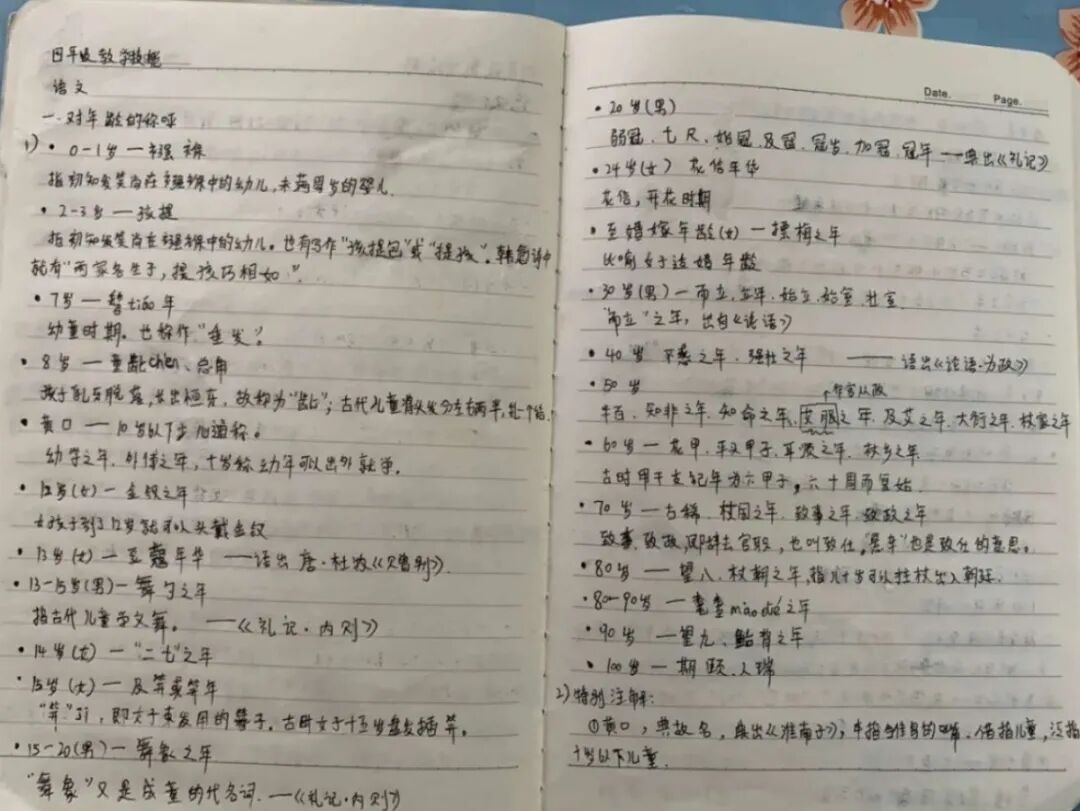 四年级教学梳理
语文
一.对年龄的称呼
1) • 0-1岁 — 襁褓
指初知发笑尚在襁褓中的幼儿,未满周岁的婴儿.
• 2-3岁 — 孩提
指初知发笑尚在襁褓中的幼儿。也有写作"孩提包"或"提孩"。韩愈诗中
就有"两家各生子,提孩巧相如"。
• 7岁 — 髫tiáo年
幼童时期。也称作"垂发"。
• 8岁 — 童龀chèn、总角
孩子乳牙脱落,长出恒牙,故称为"龀";古代儿童将头发分左右两半,扎一个结.
• 黄口 — 10岁以下步儿通称。
幼学之年.外傅之年,十岁称幼年可以出外就学.
• 12岁(女) — 金钗之年
女孩子到了12岁就可以头戴金钗
• 13岁(女) — 豆蔻年华 ——语出 唐·杜牧《赠别》
• 13-15岁(男) — 舞勺之年
指古代儿童学文舞。 ——《礼记·内则》
• 14岁(女) — "二七"之年
• 15岁(女) — 及笄或笄年
"笄"jī,即女子束发用的簪子.古时女子十五岁盘发插笄。
• 15-20(男) — 舞象之年
"舞象"又是成童的代名词. —《礼记·内则》
Date. Page.
• 20岁(男)
弱冠、七尺、始冠、及冠、冠岁、加冠、冠年 ——典出《礼记》
• 24岁(女) 花信年华
花信,开花时期
• 至婚嫁年龄(女) — 摽梅之年
比喻女子适婚年龄
• 30岁(男) — 而立.立年.始立.始室.壮室
"而立"之年,出自《论语》
• 40岁 不惑之年.强壮之年 —— 语出《论语·为政》
• 50岁 ↑年官从政
半百.知非之年.知命之年.艾服之年.及艾之年.大衍之年.杖家之年
• 60岁 — 花甲.平头甲子.耳顺之年.杖乡之年
古时用干支纪年为六甲子,六十周而复始.
• 70岁 — 古稀.杖国之年.致事之年.致政之年
致事、致政,即辞去官职,也叫致仕。"悬车"也是致仕的意思。
• 80岁 — 望八.杖朝之年,指八十岁可以拄杖出入朝廷.
• 80-90岁 — 耄耋mào dié之年
• 90岁 — 望九、鲐背之年
• 100岁 — 期颐.人瑞
2)特别注解:
①黄口,典故名,典出《淮南子》,本指雏鸟的嘴.借指儿童,泛指
十岁以下儿童.